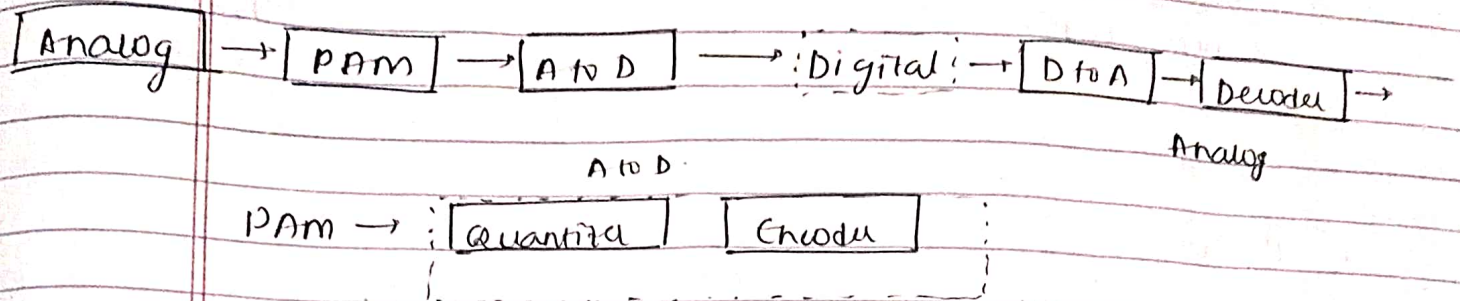 Analog → PAM → A to D → Digital → D to A → Decoder →
Analog
A to D
PAM → Quantizer Encoder